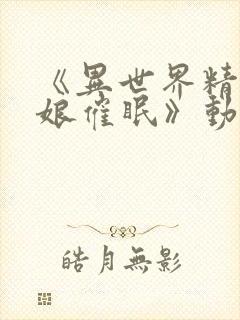 《異世界精
娘催眠》動
皓月無影